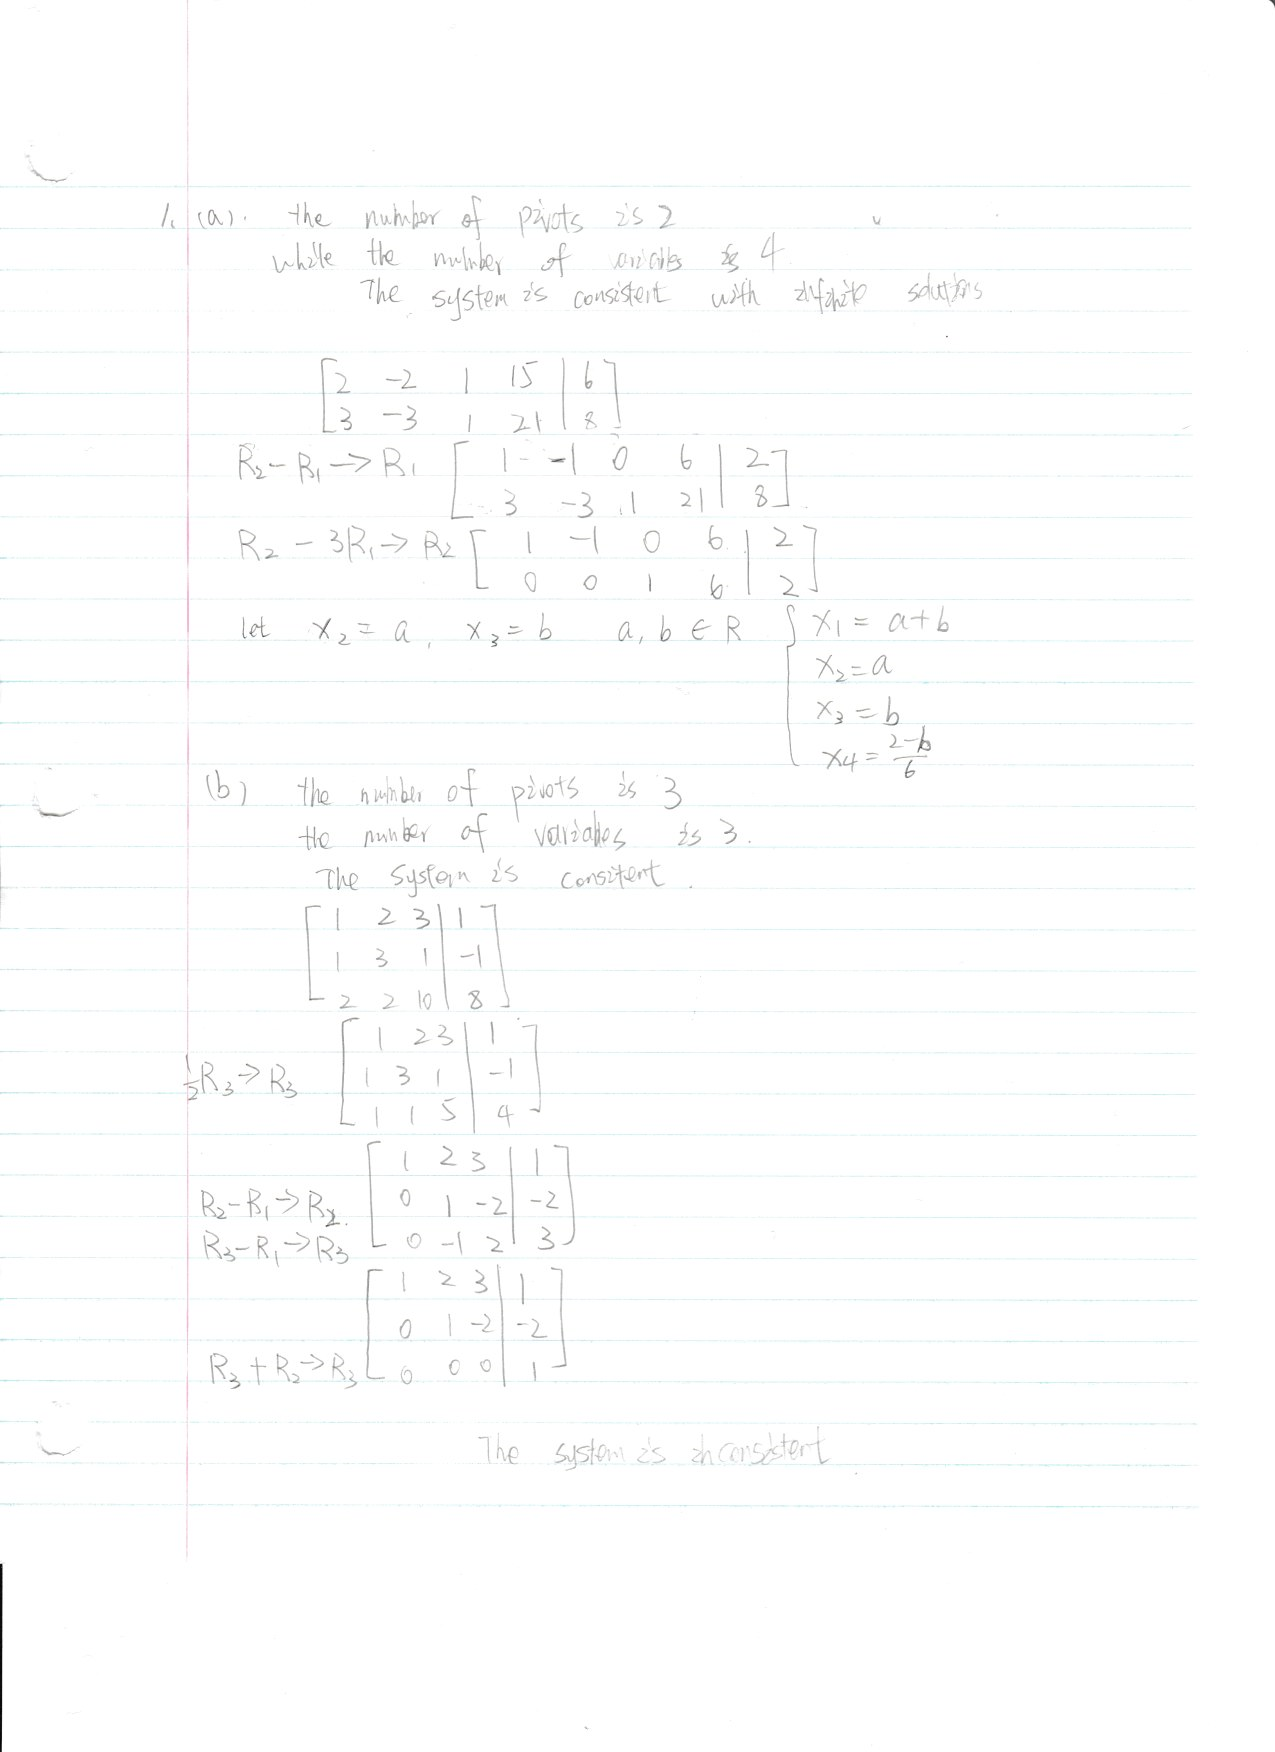 1. (a). the number of pivots is 2
while the number of variables is 4
The system is consistent with infinite solutions
[2 -2 1 15 | 6]
[3 -3 1 21 | 8]
R₂-R₁→R₁ [1 -1 0 6 | 2]
[3 -3 1 21 | 8]
R₂-3R₁→R₂ [1 -1 0 6 | 2]
[0 0 1 6 | 2]
let x₂=a, x₃=b a, b ∈ R { x₁ = a+b
x₂=a
x₃=b
x₄=(2-b)/6
(b) the number of pivots is 3
the number of variables is 3.
The system is consistent.
[1 2 3 | 1]
[1 3 1 | -1]
[2 2 10 | 8]
[1 2 3 | 1]
½R₃→R₃ [1 3 1 | -1]
[1 1 5 | 4]
[1 2 3 | 1]
R₂-R₁→R₂. [0 1 -2 | -2]
R₃-R₁→R₃ [0 -1 2 | 3]
[1 2 3 | 1]
[0 1 -2 | -2]
R₃+R₂→R₃ [0 0 0 | 1]
The system is inconsistent